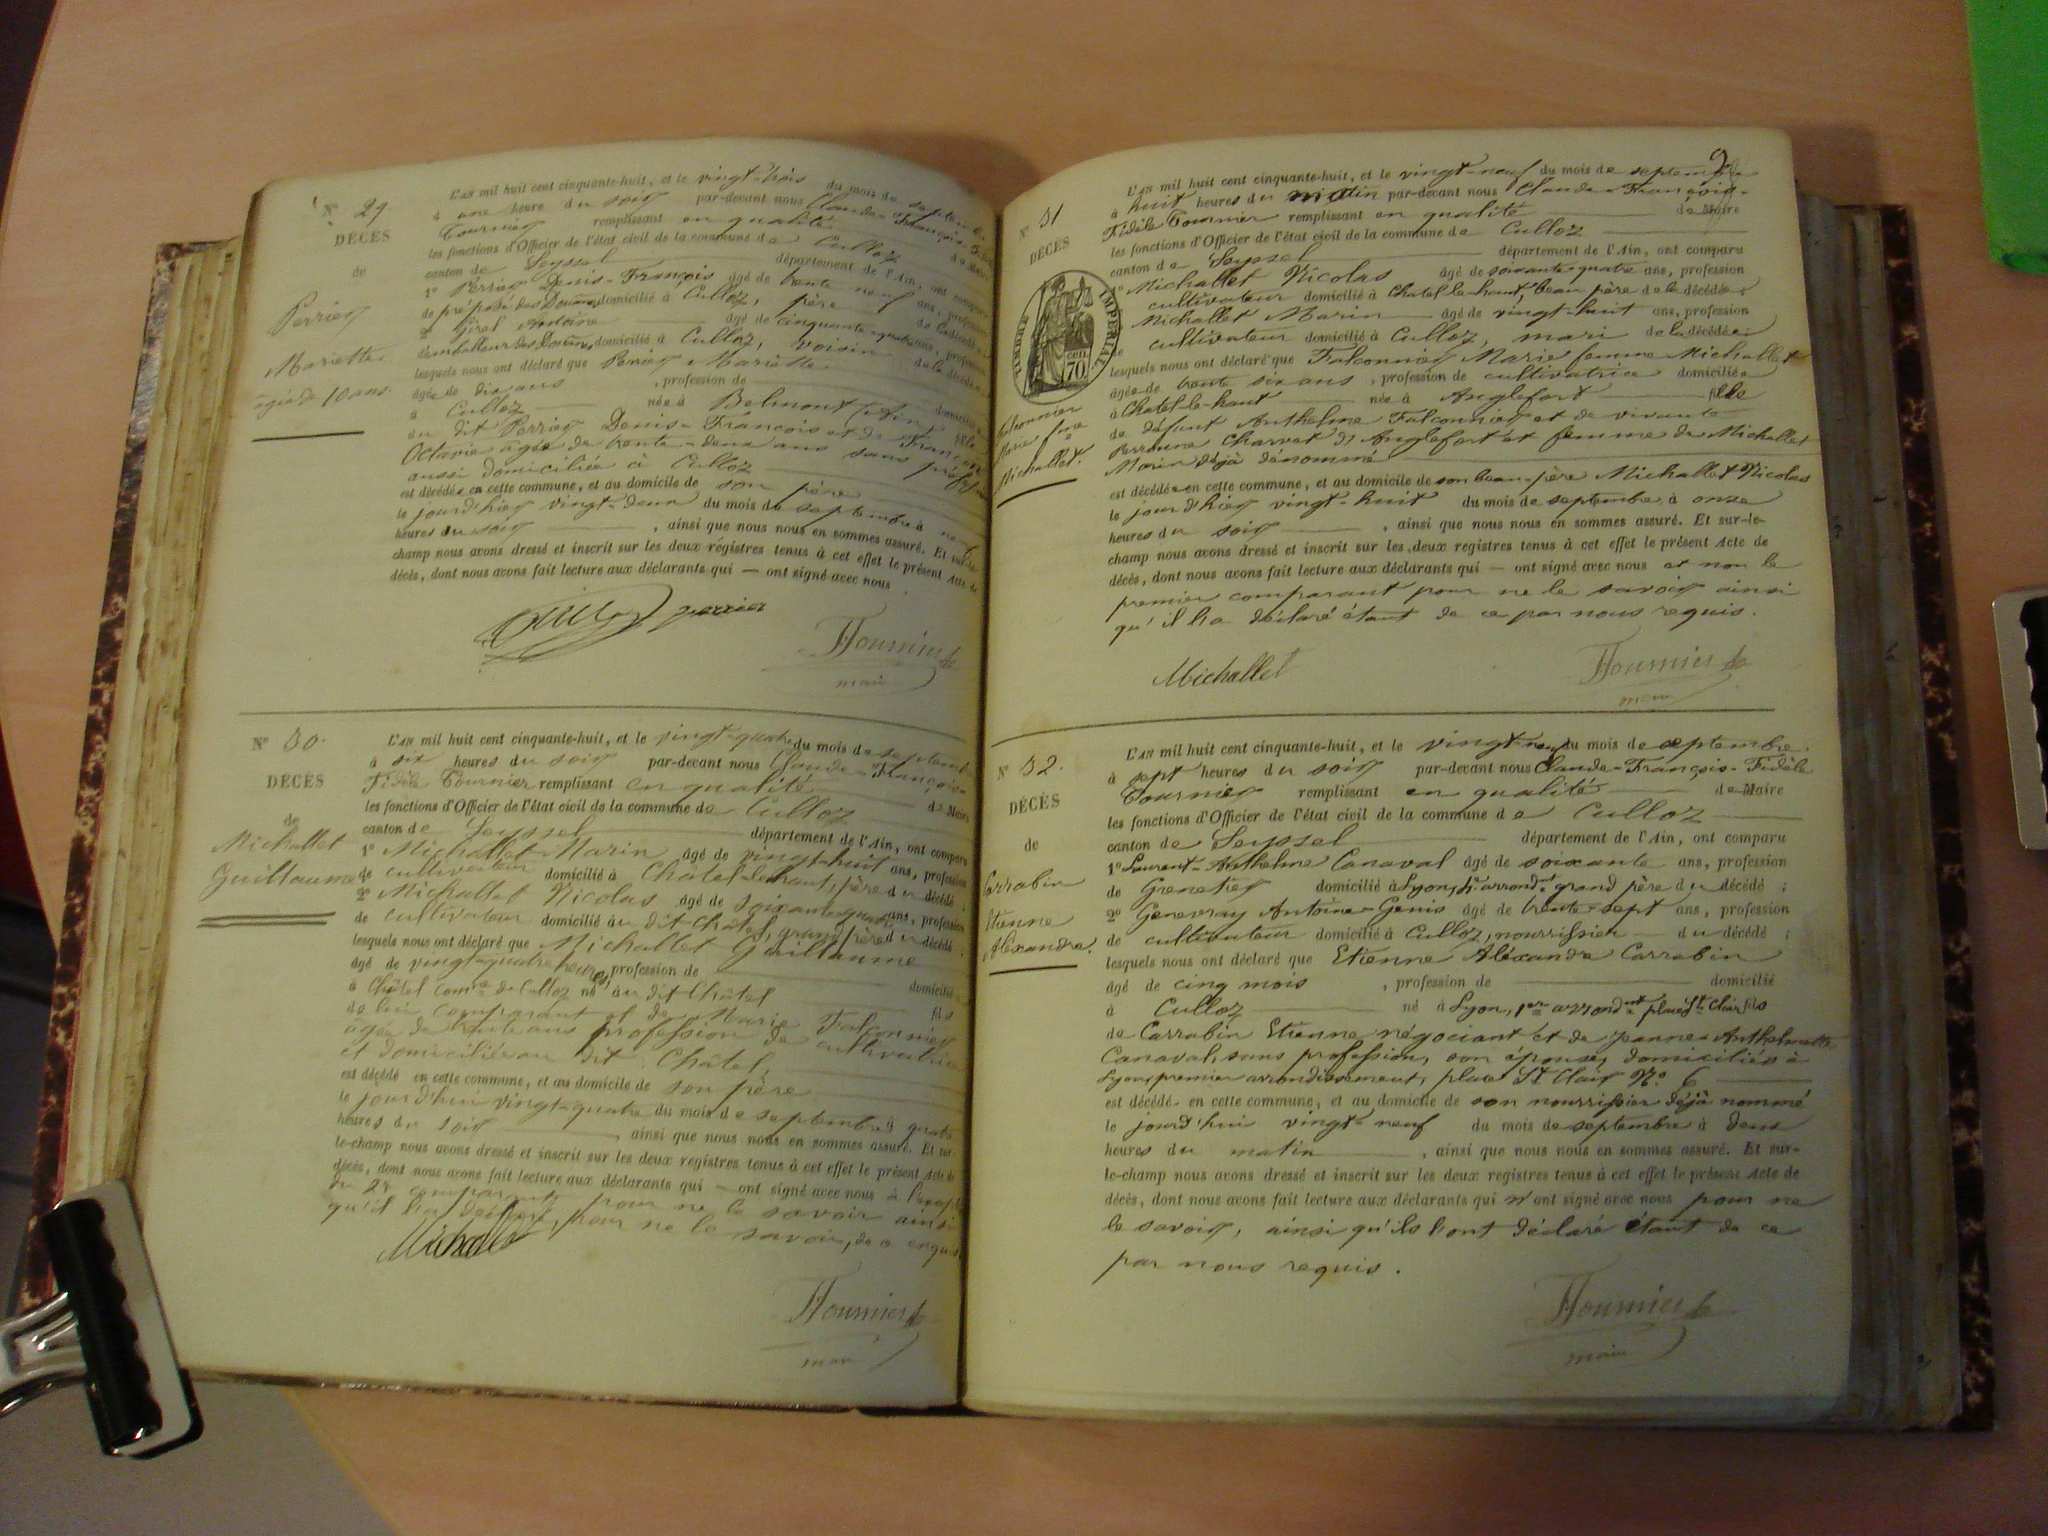 N° 29
DÉCÈS
de
Perrier
Mariette
âgée de 10 ans
L'AN mil huit cent cinquante-huit, et le vingt-trois du mois de septembre
à une heure du soir par-devant nous Claude-François-
Fournier remplissant en qualité de Maire
les fonctions d'Officier de l'état civil de la commune de Culloz
canton de Seyssel département de l'Ain, ont comparu
1° Perrier Denis-François âgé de trente neuf ans, profession
de préposé des Douanes, domicilié à Culloz, père de la décédée
2° Girel Antoine âgé de cinquante-quatre ans, profession
d'emballeur des Douanes, domicilié à Culloz, voisin de la décédée
lesquels nous ont déclaré que Perrier Mariette
âgée de dix ans , profession de domiciliée
à Culloz née à Belmont (Ain) fille
du dit Perrier Denis-François et de Françon
Octavie âgée de trente-deux ans sans profession
aussi domiciliée à Culloz
est décédée en cette commune, et au domicile de son père
le jourd'hier vingt-deux du mois de septembre à neuf
heures du soir , ainsi que nous nous en sommes assuré. Et sur-le-
champ nous avons dressé et inscrit sur les deux régistres tenus à cet effet le présent Acte de
décès, dont nous avons fait lecture aux déclarants qui — ont signé avec nous
perrier
Fournier
maire
N° 30.
DÉCÈS
de
Michallet
Guillaume
L'AN mil huit cent cinquante-huit, et le vingt-quatre du mois de septembre
à six heures du soir par-devant nous Claude-François-
Fidèle Fournier remplissant en qualité de Maire
les fonctions d'Officier de l'état civil de la commune de Culloz
canton de Seyssel département de l'Ain, ont comparu
1° Michallet Marin âgé de vingt-huit ans, profession
de cultivateur domicilié à Châtel-le-haut, père du décédé ;
2° Michallet Nicolas âgé de soixante-quatre ans, profession
de cultivateur domicilié au dit Châtel, grand père du décédé ;
lesquels nous ont déclaré que Michallet Guillaume
âgé de vingt-quatre heures, profession de domicilié
à Châtel comne de Culloz né au dit Châtel fils
de lui comparant et de Marie Falconnier
âgée de trente ans profession de cultivatrice
et domiciliés au dit Châtel,
est décédé en cette commune, et au domicile de son père
le jourd'hui vingt-quatre du mois de septembre à quatre
heures du soir , ainsi que nous nous en sommes assuré. Et sur-
le-champ nous avons dressé et inscrit sur les deux registres tenus à cet effet le présent Acte de
décès, dont nous avons fait lecture aux déclarants qui — ont signé avec nous à l'except
du 2e comparant pour ne le savoir ainsi
qu'il l'a déclaré, pour ne le savoir, de ce enquis
Michallet
Fournier
maire
9
N° 31
DÉCÈS
TIMBRE IMPÉRIAL
70 cen.
Falconnier
Marie fme
Michallet.
L'AN mil huit cent cinquante-huit, et le vingt-neuf du mois de septembre
à huit heures du matin par-devant nous Claude-François-
Fidèle Fournier remplissant en qualité de Maire
les fonctions d'Officier de l'état civil de la commune de Culloz
canton de Seyssel département de l'Ain, ont comparu
1° Michallet Nicolas âgé de soixante-quatre ans, profession
cultivateur domicilié à Chatel-le-haut, beau père de la décédée ;
Michallet Marin âgé de vingt-huit ans, profession
de cultivateur domicilié à Culloz, mari de la décédée
lesquels nous ont déclaré que Falconnier Marie femme Michallet
âgée de trente six ans , profession de cultivatrice domiciliée
à Chatel-le-haut née à Anglefort fille
de défunt Anthelme Falconnier et de vivante
Perronne Charvet d'Anglefort et femme de Michallet
Marin déjà dénommé
est décédée en cette commune, et au domicile de son beau-père Michallet Nicolas
le jourd'hier vingt-huit du mois de septembre à onze
heures du soir , ainsi que nous nous en sommes assuré. Et sur-le-
champ nous avons dressé et inscrit sur les deux registres tenus à cet effet le présent Acte de
décès, dont nous avons fait lecture aux déclarants qui — ont signé avec nous et non le
premier comparant pour ne le savoir ainsi
qu'il l'a déclaré étant de ce par nous requis.
Michallet
Fournier
maire
N° 32.
DÉCÈS
de
Carrabin
Etienne
Alexandre.
L'AN mil huit cent cinquante-huit, et le vingt-neuf du mois de septembre.
à sept heures du soir par-devant nous Claude-François-Fidèle
Fournier remplissant en qualité de Maire
les fonctions d'Officier de l'état civil de la commune de Culloz
canton de Seyssel département de l'Ain, ont comparu
1° Laurent-Anthelme Canaval âgé de soixante ans, profession
de Grenetier domicilié à Lyon, arrondt grand père du décédé ;
2° Genevray Antoine-Genis âgé de trente-sept ans, profession
de cultivateur domicilié à Culloz, nourrissier — du décédé ;
lesquels nous ont déclaré que Etienne Aléxandre Carrabin
âgé de cinq mois , profession de domicilié
à Culloz né à Lyon, 1er arrondnt place St Clair fils
de Carrabin Etienne négociant et de Jeanne-Anthelmette
Canaval, sans profession, son épouse, domiciliés à
Lyon, premier arrondissement, place St Clair N° 6
est décédé en cette commune, et au domicile de son nourrissier déjà nommé
le jourd'hui vingt-neuf du mois de septembre à deux
heures du matin , ainsi que nous nous en sommes assuré. Et sur-
le-champ nous avons dressé et inscrit sur les deux registres tenus à cet effet le présent Acte de
décès, dont nous avons fait lecture aux déclarants qui n'ont signé avec nous pour ne
le savoir, ainsi qu'ils l'ont déclaré étant de ce
par nous requis.
Fournier
maire